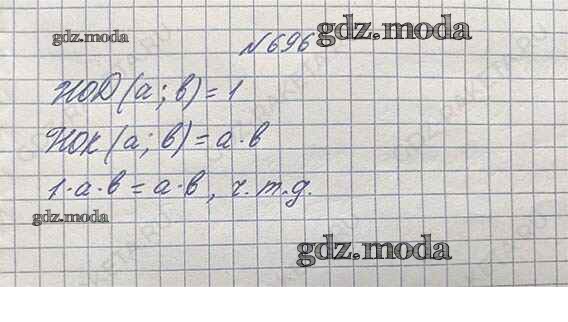 gdz.moda
№696
gdz.moda
НОД (а ; в) = 1
НОК (а ; в) = а · в
1 · а · в = а · в , ч.т.д.
gdz.moda
gdz.moda